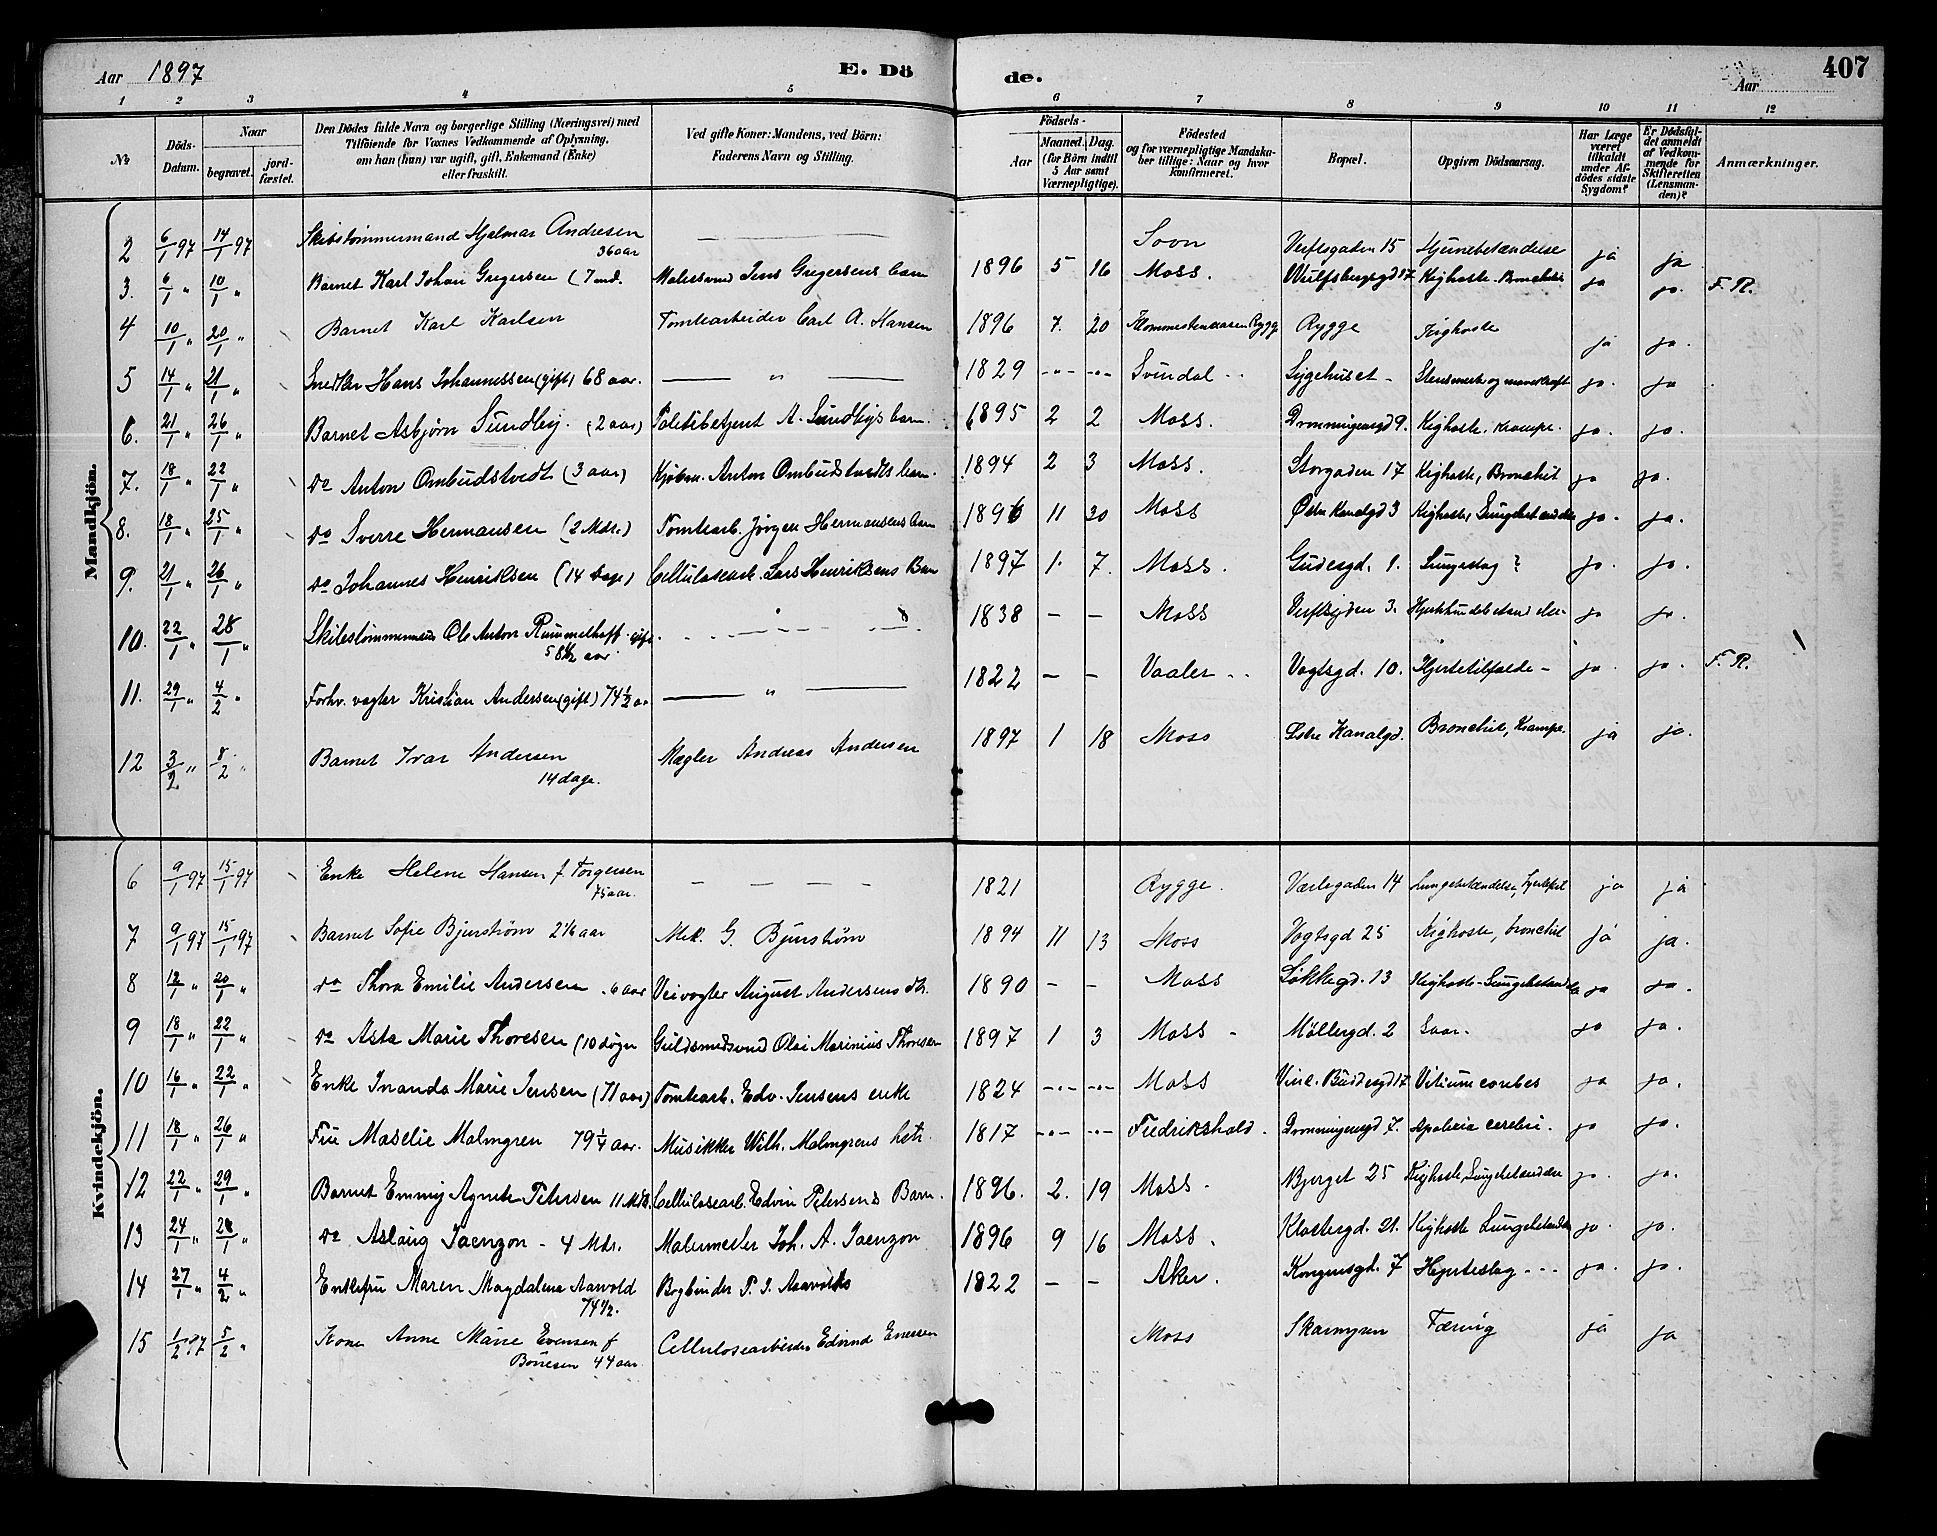 Aar 1897 E. Dö de. Aar 407
1 2 3 4 5 6 7 8 9 10 11 12
№ Döds-Datum. Naar begravet. jord-fæstet. Den Dödes fulde Navn og borgerlige Stilling (Næringsvei) med Tilföiende for Voxnes Vedkommende af Oplysning, om han (hun) var ugift, gift, Enkemand (Enke) eller fraskilt. Ved gifte Koner: Mandens, ved Börn: Faderens Navn og Stilling. Födsels- Aar Maaned. Dag. (for Börn indtil 5 Aar samt Værnepligtige). Födested og for værnepligtige Mandskaber tillige: Naar og hvor konfirmeret. Bopæl. Opgiven Dödsaarsag. Har Læge været tilkaldt under Afdödes sidste Sygdom? Er Dödsfaldet anmeldt af Vedkommende for Skifteretten (Lensmanden)? Anmærkninger.
Mandkjön.
2 6/1 97 14/1 97 Skibstømmermand Hjalmar Andresen 36 aar — Soon Verftsgaden 15 Hjernebetændelse ja ja
3. 6/1 " 10/1 " Barnet Karl Johan Gregersen (7 md. Jens Gregersens barn 1896 5 16 Moss. Wulfsbergsgd 17 Kighoste. Bronchit ja ja. F. R.
4 10/1 " 20/1 " Barnet Karl Karlsen Tomtearbeider Carl A. Hansen 1896 7. 20 Rygge Rygge Kighoste ja ja.
5 14/1 " 21/1 " Snedker Hans Johannessen (gift) 68 aar. — " — 1829 -"- -"- Svindal Sygehuset - og mavekræft ja. ja
6. 21/1 " 26/1 " Barnet Asbjørn Sundby. (2 aar) Politibetjent A. Sundbys barn. 1895 2 2 Moss. Dronningensgd 9. Kighoste, krampe. ja. ja.
7. 18/1 " 22/1 " do Anton Ombudstvedt (3 aar) Kjøbm. Anton Ombudstvedts barn. 1894 2 3 Moss. Storgaden 17 Kighoste, Bronchit ja ja.
8. 18/1 " 25/1 " do Sverre Hermansen (2 Mdr.) Tomtearb. Jørgen Hermansens barn 1896 11 30 Moss Østre Kanalgd 3 Kighoste, Lungebetændelse ja. ja.
9. 21/1 " 26/1 " do Johannes Henriksen (14 Dage) Cellulosearb. Lars Henriksens Barn 1897 1. 7. Moss. Gudesgd. 1. Lungeslag ? ja. ja.
10. 22/1 " 28/1 " Ole Anton Rummelhoff gift. 58 1/2 aar — " — 1838 — — Moss Verftsgden 3. ja ja.
11. 29/1 " 4/2 " Forhv. vægter Kristian Andersen (gift) 74 1/2 aar — " — 1822 — — Vaaler Vogtsgd. 10. Hjertetilfælde - ja. ja. F. R.
12 3/2 " 8/2 " Barnet Ivar Andersen 14 dage. Mægler Andreas Andersen 1897 1 18 Moss Østre Kanalgd. Bronchit, Krampe. ja ja.
Kvindekjön.
6 9/1 97 15/1 97 Enke Helene Hansen f. Torgersen 75 aar. — — — — 1821 Rygge. Værlegaden 14 Lungebetændelse, ja ja
7 9/1 97 15/1 97 Barnet Sofie Bjurstrøm 2 1/6 aar Mek. G. Bjurstrøm 1894 11 13 Moss Vogtsgd 25 Kighoste, bronchit ja ja.
8 12/1 " 20/1 " do Thora Emilie Andersen 6 aar Veivogter August Andersens dtr. 1890 — — Moss Løkkegd. 13 Kighoste-Lungebetændelse ja ja.
9 18/1 " 22/1 " do Asta Marie Thoresen (10 døgn Guldsmedsvend Olai Marinius Thoresen 1897 1 3 Moss - Møllergd. 2 Saar. ja ja.
10 16/1 " 22/1 " Enke Inanda Marie Jensen (71 aar) Tomtearb. Edv. Jensens enke 1824 -"- -"- Moss Vinc. Buddesgd 17 Vitium cordis ja ja.
11 18/1 " 26/1 " Fru Maselie Malmgren 79 1/4 aar. Musikker Wilh. Malmgrens 1817 -"- -"- Fredrikshald. Dronningensgd 7. cerebri. ja ja.
12 22/1 " 29/1 " Barnet Emmy Agnete Petersen 11 Mdr. Cellulosearb. Edvin Petersens Barn. 1896. 2. 19 Moss. Bjerget 25 Kighoste, Lungebetændelse ja. ja.
13 24/1 " 28/1 " do Aslaug Jaenzon - 4 Mdr. Malermester Joh. A. Jaenzon 1896 9 16 Moss. Klostergd. 21. Kighoste Lungebetændelse ja. ja.
14 27/1 " 4/2 " Enkefru Maren Magdalena Aarvold 74 1/2. Bogbinder P. J. Aarvolds 1822 — — Aker. Kongensgd. 7 Hjerteslag - - - ja. ja.
15 1/2 97 5/2 " Kone Anne Marie Evensen f. Børresen 44 aar Cellulosearbeider Edvind Evensen Moss Skarmyren Tæring ja ja